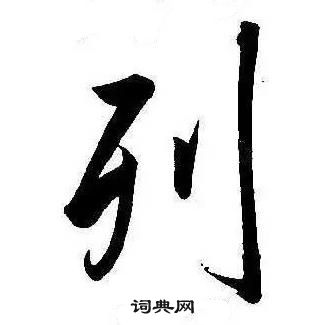 列
词典网